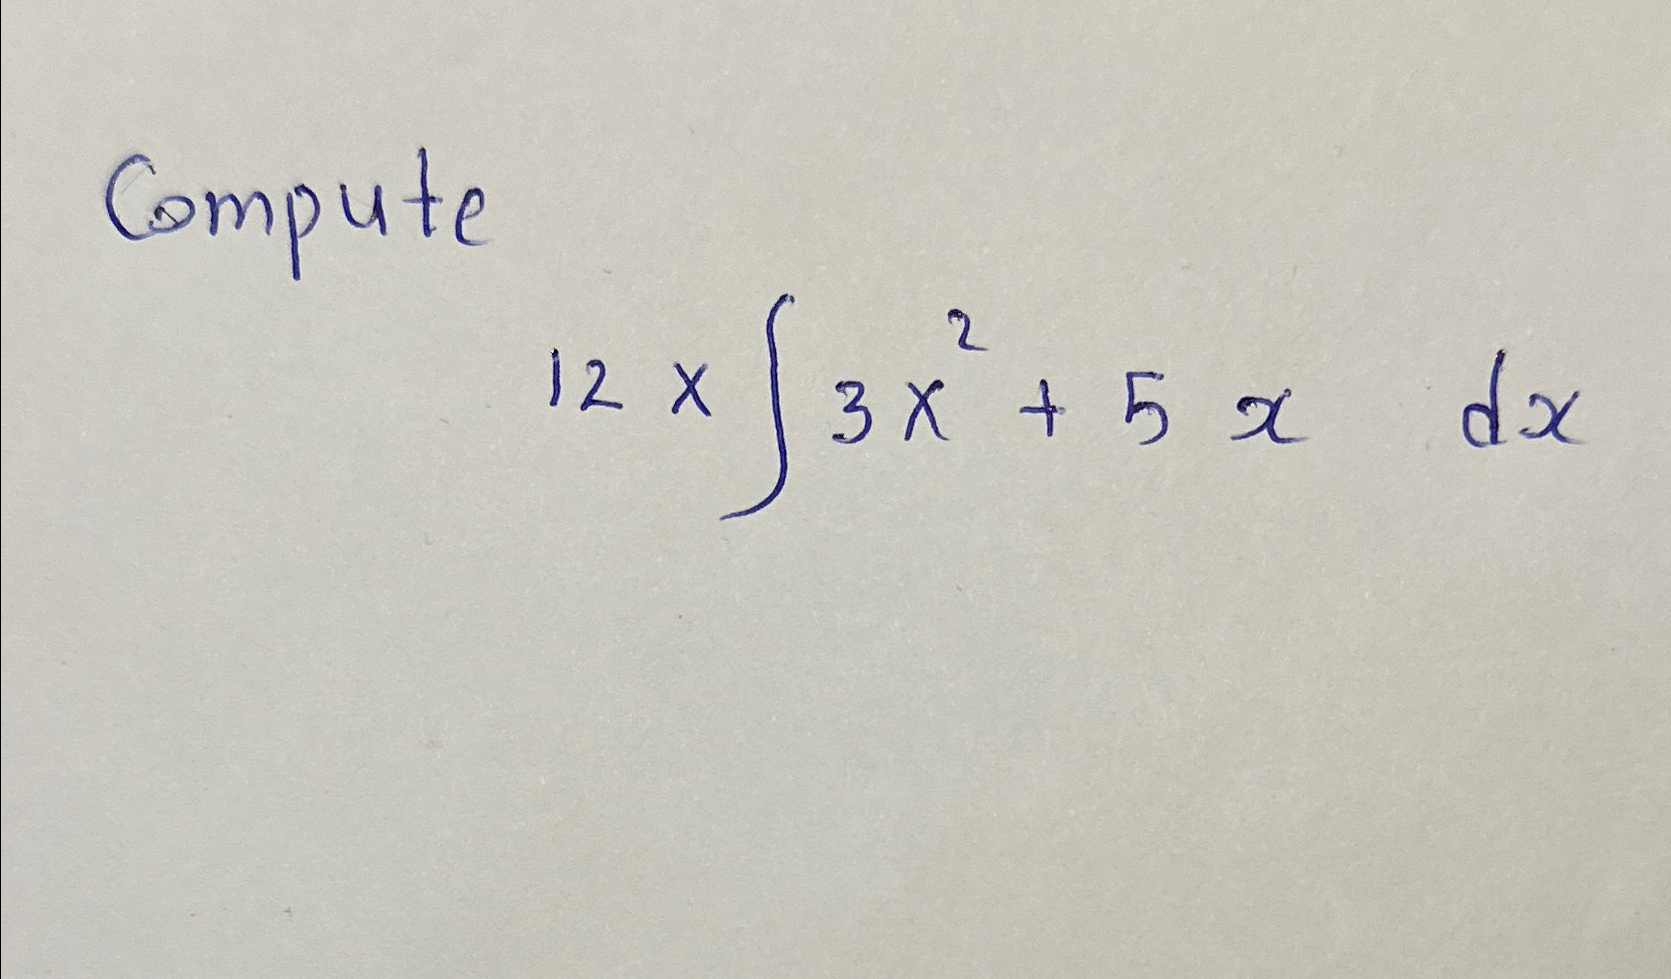 Compute
12 x ∫ 3x² + 5 x dx